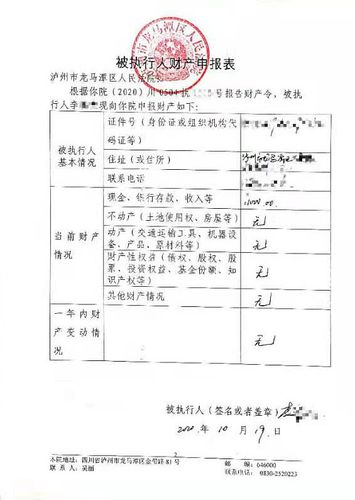 被执行人财产申报表
泸州市龙马潭区人民法院:
根据你院(2020)川0504执 号报告财产令,被执
行人李 现向你院申报财产如下:
被执行人
基本情况
证件号(身份证或组织机构代
码证等)
住址(或住所)
联系电话
当前财产
情况
现金、银行存款、收入等
不动产(土地使用权、房屋等)
无
动产(交通运输工具、机器设
备、产品、原材料等)
无
财产性权益(债权、股权、股
票、投资权益、基金份额、知
识产权等)
无
其他财产情况
无
一年内财
产变动情
况
无
被执行人(签名或者盖章)
2020 年 10 月 19 日
2
本院地址:四川省泸州市龙马潭区金带路81号
邮 编:646000
联系人:吴丽
联系电话:0830-2520223